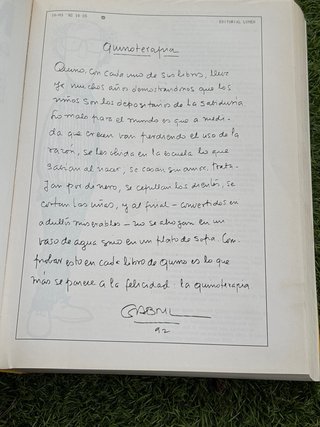 EDITORIAL LUMEN
Quinoterapia
Quino, con cada uno de sus libros, lleva
ya muchos años demostrándonos que los
niños son los depositarios de la sabiduría
Lo malo para el mundo es que a medi-
da que crecen van perdiendo el uso de la
razón, se les olvida en la escuela lo que
sabían al nacer, se casan sin amor, traba-
jan por dinero, se cepillan los dientes, se
cortan las uñas, y al final - convertidos en
adultos miserables - no se ahogan en un
vaso de agua sino en un plato de sopa. Com-
probar esto en cada libro de Quino es lo que
más se parece a la felicidad: la Quinoterapia
92